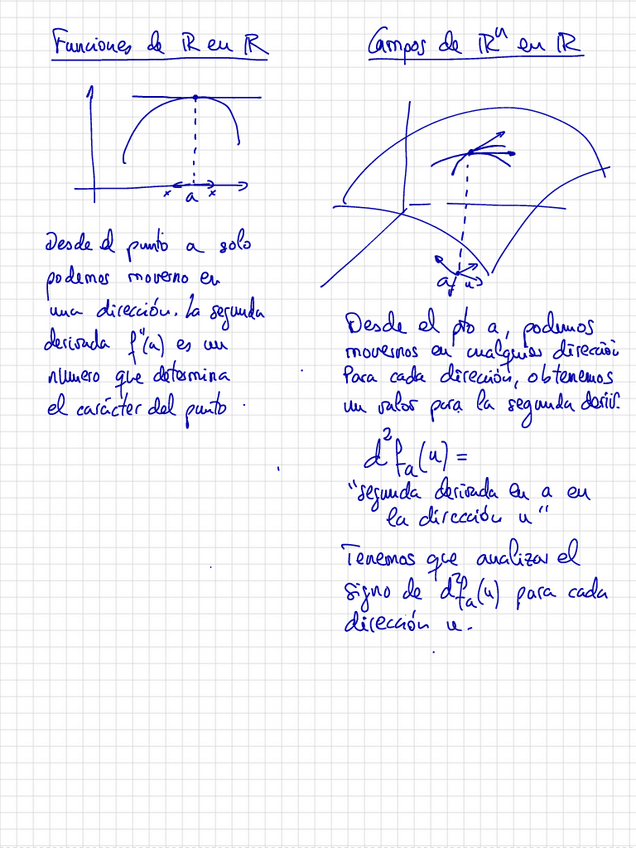 Funciones de ℝ en ℝ
x a x
Desde el punto a solo
podemos moverno en
una dirección. La segunda
derivada f''(a) es un
número que determina
el carácter del punto.
Campos de ℝⁿ en ℝ
a u
Desde el pto a, podemos
movernos en cualquier dirección
Para cada dirección, obtenemos
un valor para la segunda deriv.
d²fₐ(u) =
"segunda derivada en a en
la dirección u"
Tenemos que analizar el
signo de d²fₐ(u) para cada
dirección u.